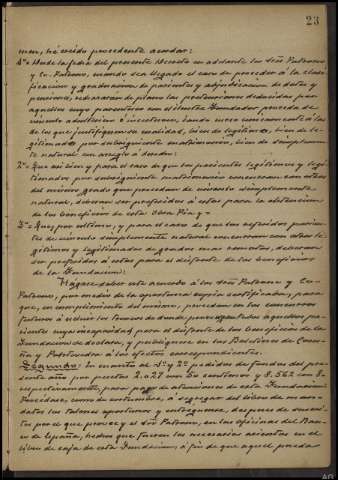 23
men, há oído procedente acordar:
1º Desde la fecha del presente Decreto en adelante los Sres Patrono
y Co-Patrono, cuando sea llegado el caso de proceder á la clasi-
ficacion y graduacion de parientes y adjudicacion de dotes y
pensiones, rechazarán de plano las pretensiones deducidas por
aquellos cuyo parentesco con el ilustre Fundador proceda de
vínculo adulterino ó incestuoso, dando curso únicamente á las
de los que justifiquen su cualidad, bien de legítimos, bien de le-
gitimados por subsiguiente matrimonio, bien de simplemen-
te natural con arreglo á derecho:
2º Que así bien y para el caso de que los parientes legítimos y legi-
timados por subsiguiente matrimonio concurran con otros
del mismo grado que procedan de vínculo simplemente
natural, deberán ser preferidos á estos para la obtencion
de los beneficios de esta Obra Pía y
3º Que, por último, y para el caso de que los referidos parien-
tes de vínculo simplemente natural concurran con otros le-
gítimos y legitimados de grados mas remotos, deberán
ser preferidos á estos para el disfrute de los beneficios
de la Fundacion:
Hágase saber este acuerdo á los Sres Patrono y Co-
Patrono, por medio de la oportuna copia certificada, para
que, en cumplimiento del mismo, procedan en las convocatorias
futuras á excluir los terminos de donde procedan aquellos pa-
rientes cuya incapacidad, para el disfrute de los beneficios de la
Fundacion se declara, y publíquese en los Boletines de Coru-
ña y Pontevedra á los efectos correspondientes.
Segundo: En cuanto á 1º y 2º pedidos de fondos del pre-
sente año por pesetas 2.027 con 50 centimos y 8.562 con 8.
respectivamente, para pago de atenciones de esta Fundacion
Procédase, como de costumbre, á segregar del libro de man-
datos los talones oportunos y entreguense, despues de suscri-
tos por el que provee y el Sr Patrono, en las oficinas del Ban-
co de España, hechos que fueren los necesarios asientos en el
libro de caja de esta Fundacion, á fin de que aquel pueda